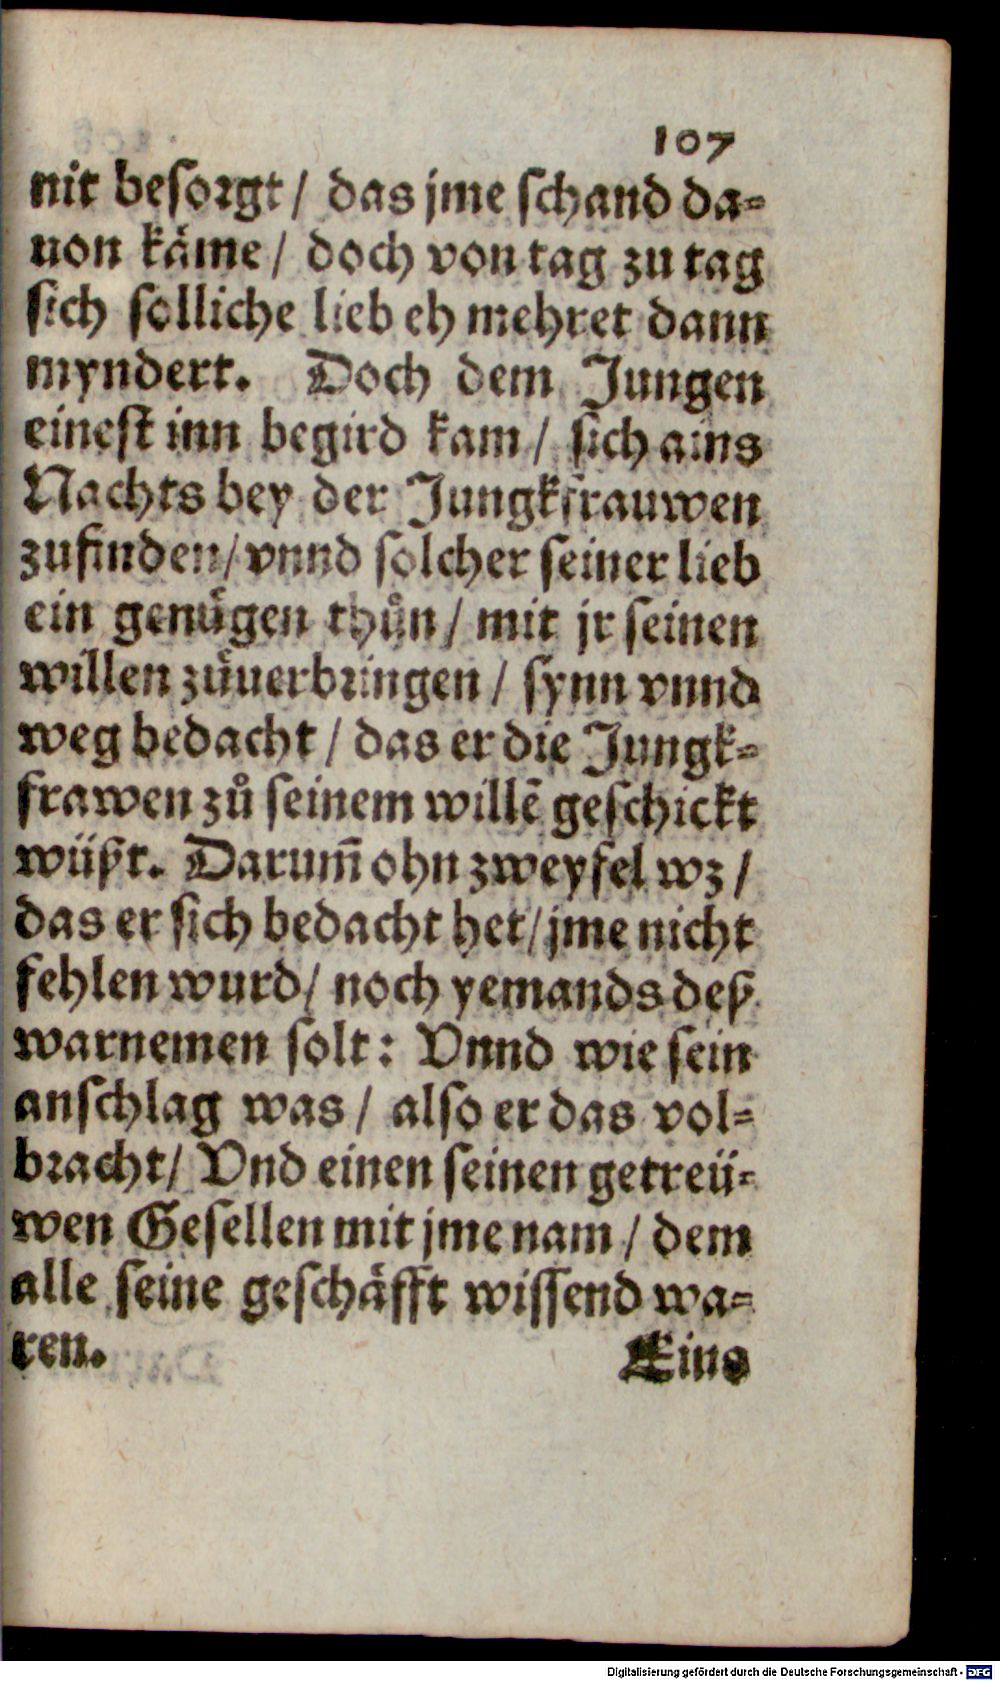 107
nit besorgt / das jme schand da-
uon käme / doch von tag zu tag
sich solliche lieb eh mehret dann
myndert. Doch dem Jungen
einest inn begird kam / sich ains
Nachts bey der Jungkfrauwen
zufinden / vnnd solcher seiner lieb
ein genügen thůn / mit jr seinen
willen zůuerbringen / synn vnnd
weg bedacht / das er die Jungk-
frawen zů seinem willē geschickt
wüßt. Darum̄ ohn zweyfel wz /
das er sich bedacht het / jme nicht
fehlen wurd / noch yemands deß
warnemen solt: Vnnd wie sein
anschlag was / also er das vol-
bracht / Vnd einen seinen getreü-
wen Gesellen mit jme nam / dem
alle seine geschäfft wissend wa-
ren.
Eins
Digitalisierung gefördert durch die Deutsche Forschungsgemeinschaft - DFG